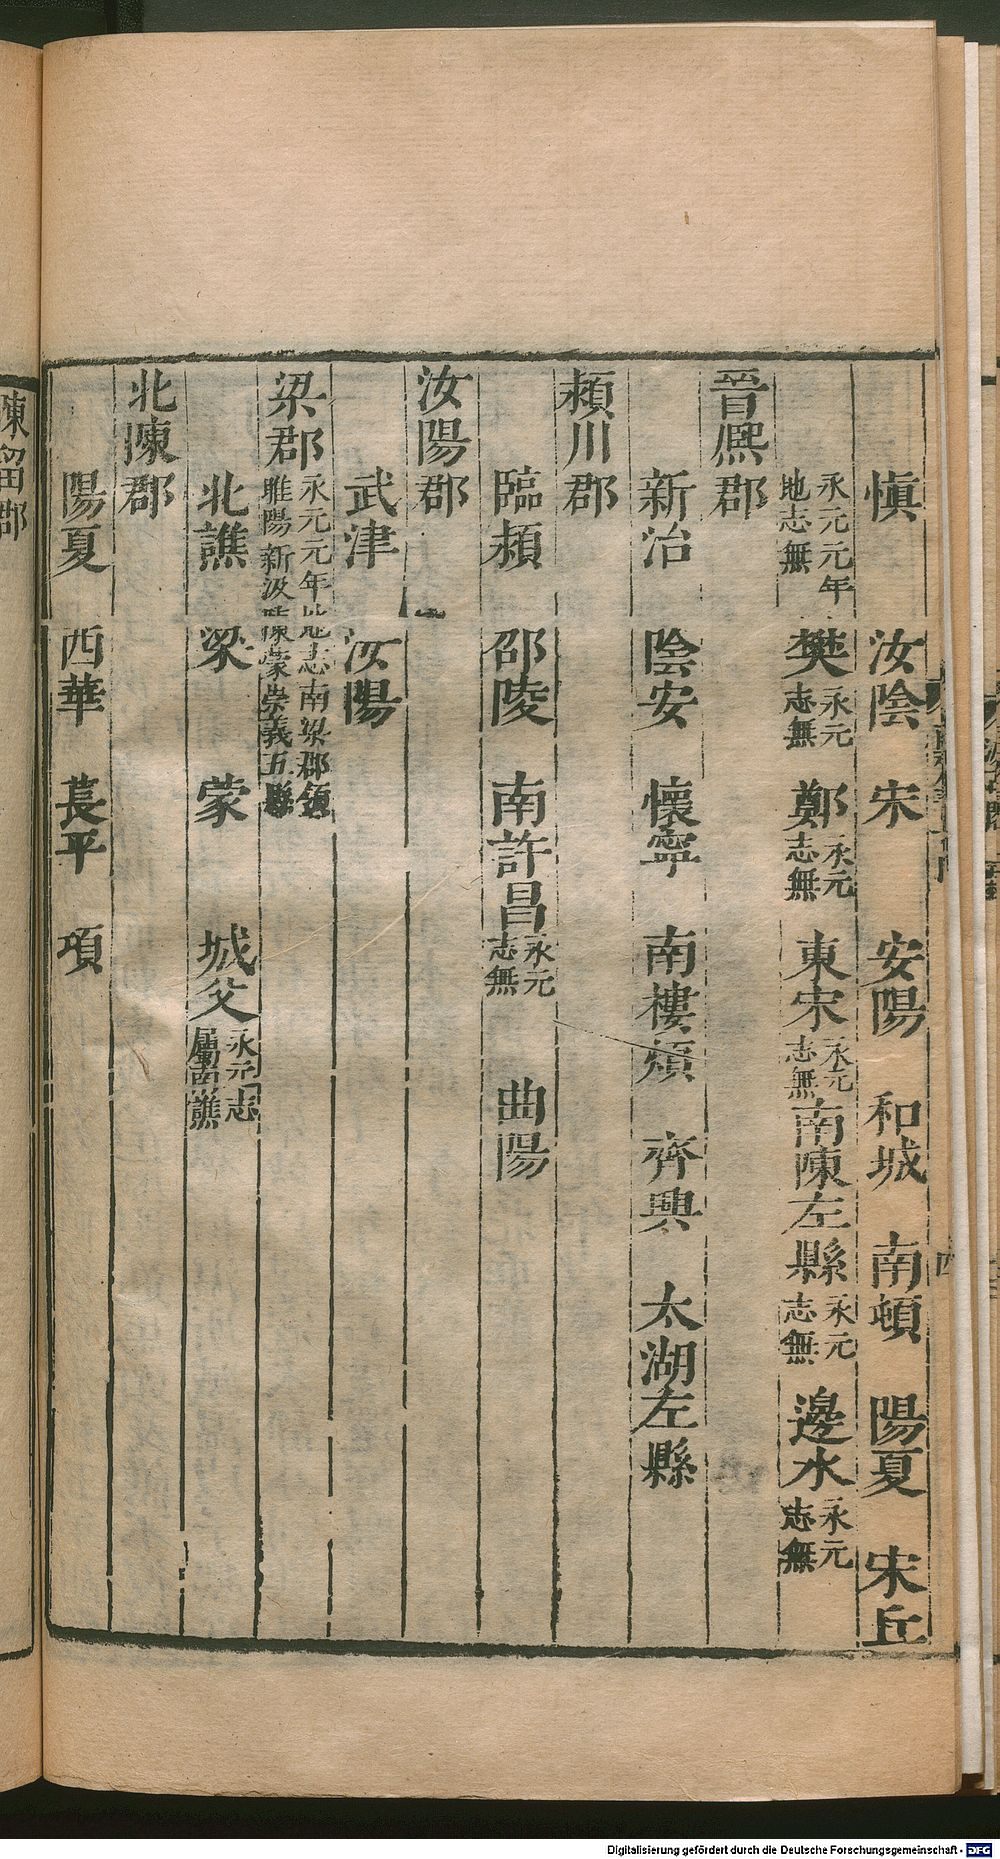 慎 汝陰 宋 安陽 和城 南頓 陽夏 宋丘
永元元年地志無 樊永元志無 鄭永元志無 東宋永元志無 南陳左縣永元志無 邊水永元志無
晉熈郡
新治 陰安 懷寧 南樓煩 齊興 太湖左縣
潁川郡
臨潁 邵陵 南許昌永元志無 曲陽
汝陽郡
武津 汝陽
梁郡永元元年地志南梁郡領睢陽新汲陳蒙崇義五縣
北譙 梁 蒙 城父永元志屬南譙
北陳郡
陽夏 西華 萇平 項
陳留郡
Digitalisierung gefördert durch die Deutsche Forschungsgemeinschaft - DFG